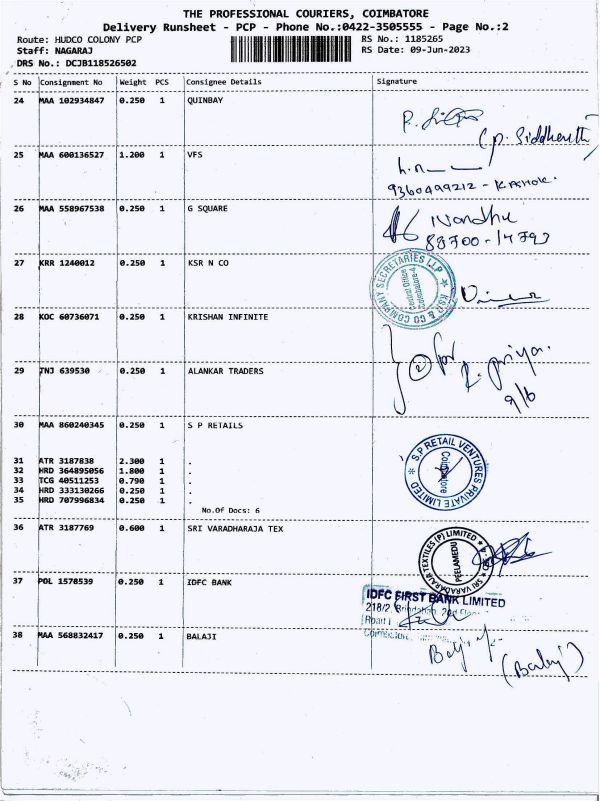 THE PROFESSIONAL COURIERS, COIMBATORE
Delivery Runsheet - PCP - Phone No.:0422-3505555 - Page No.:2
Route: HUDCO COLONY PCP RS No.: 1185265
Staff: NAGARAJ RS Date: 09-Jun-2023
DRS No.: DCJB118526502
S No Consignment No Weight PCS Consignee Details Signature
24 MAA 102934847 0.250 1 QUINBAY
(P. Siddharth)
25 MAA 600136527 1.200 1 VFS
9360499212 - KASHOK.
26 MAA 558967538 0.250 1 G SQUARE
Nandhu
88700-14793
27 KRR 1240012 0.250 1 KSR N CO
KSR & CO COMPANY SECRETARIES LLP
Central Office
Coimbatore-4
28 KOC 60736071 0.250 1 KRISHAN INFINITE
② for
R. priya.
9/6
29 TNJ 639530 0.250 1 ALANKAR TRADERS
30 MAA 860240345 0.250 1 S P RETAILS
31 ATR 3187838 2.300 1 .
32 HRD 364895056 1.800 1 .
33 TCG 40511253 0.790 1 .
34 HRD 333130266 0.250 1 .
35 HRD 707996834 0.250 1 .
No.Of Docs: 6
S.P RETAIL VENTURES PRIVATE LIMITED
Coimbatore
36 ATR 3187769 0.600 1 SRI VARADHARAJA TEX
SRI VARADARAJA TEXTILES (P) LIMITED
PEELAMEDU
CBE-4
37 POL 1578539 0.250 1 IDFC BANK
IDFC FIRST BANK LIMITED
218/2, Brindhavan, 2nd Floor
Road
38 MAA 568832417 0.250 1 BALAJI
(Balaji)